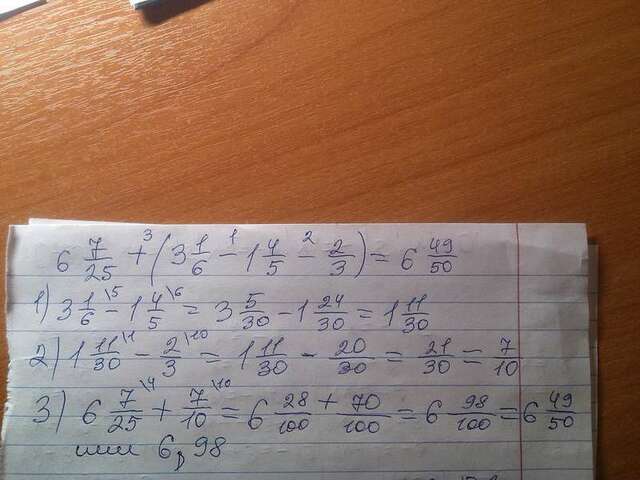 6 7/25 +³ (3 1/6 -¹ 1 4/5 -² 2/3) = 6 49/50
1) 3 1/6 \5 - 1 4/5 \6 = 3 5/30 - 1 24/30 = 1 11/30
2) 1 11/30 \1 - 2/3 \10 = 1 11/30 - 20/30 = 21/30 = 7/10
3) 6 7/25 \4 + 7/10 \10 = 6 28/100 + 70/100 = 6 98/100 = 6 49/50
или 6,98